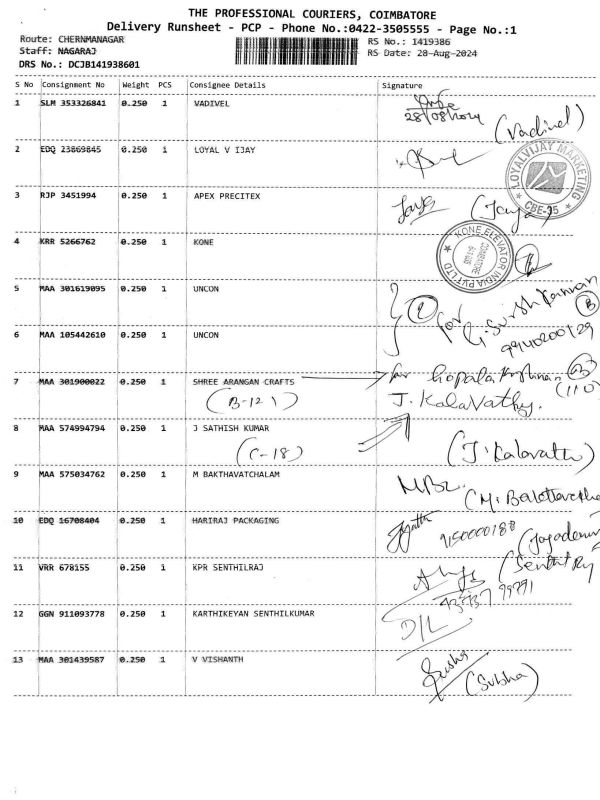 THE PROFESSIONAL COURIERS, COIMBATORE
Delivery Runsheet - PCP - Phone No.:0422-3505555 - Page No.:1
Route: CHERNMANAGAR RS No.: 1419386
Staff: NAGARAJ RS Date: 28-Aug-2024
DRS No.: DCJB141938601
S No Consignment No Weight PCS Consignee Details Signature
1 SLM 353326841 0.250 1 VADIVEL
28/08/2024 (Vadivel)
2 EDQ 23869845 0.250 1 LOYAL V IJAY
LOYALVIJAY MARKETING CBE-35
3 RJP 3451994 0.250 1 APEX PRECITEX
Jaya (Jaya)
4 KRR 5266762 0.250 1 KONE
KONE ELEVATOR INDIA PVT LTD COIMBATORE
5 MAA 301619095 0.250 1 UNCON
for G. Suresh Kannan (B)
6 MAA 105442610 0.250 1 UNCON
9940200129
7 MAA 301900022 0.250 1 SHREE ARANGAN CRAFTS for Gopala Krishnan
(B-121) J. Kalavathy. (110)
8 MAA 574994794 0.250 1 J SATHISH KUMAR
(C-18) (J. Kalavathy)
9 MAA 575034762 0.250 1 M BAKTHAVATCHALAM
10 EDQ 16708404 0.250 1 HARIRAJ PACKAGING
11 VRR 678155 0.250 1 KPR SENTHILRAJ
12 GGN 911093778 0.250 1 KARTHIKEYAN SENTHILKUMAR
D/L
13 MAA 301439587 0.250 1 V VISHANTH
(Subha)